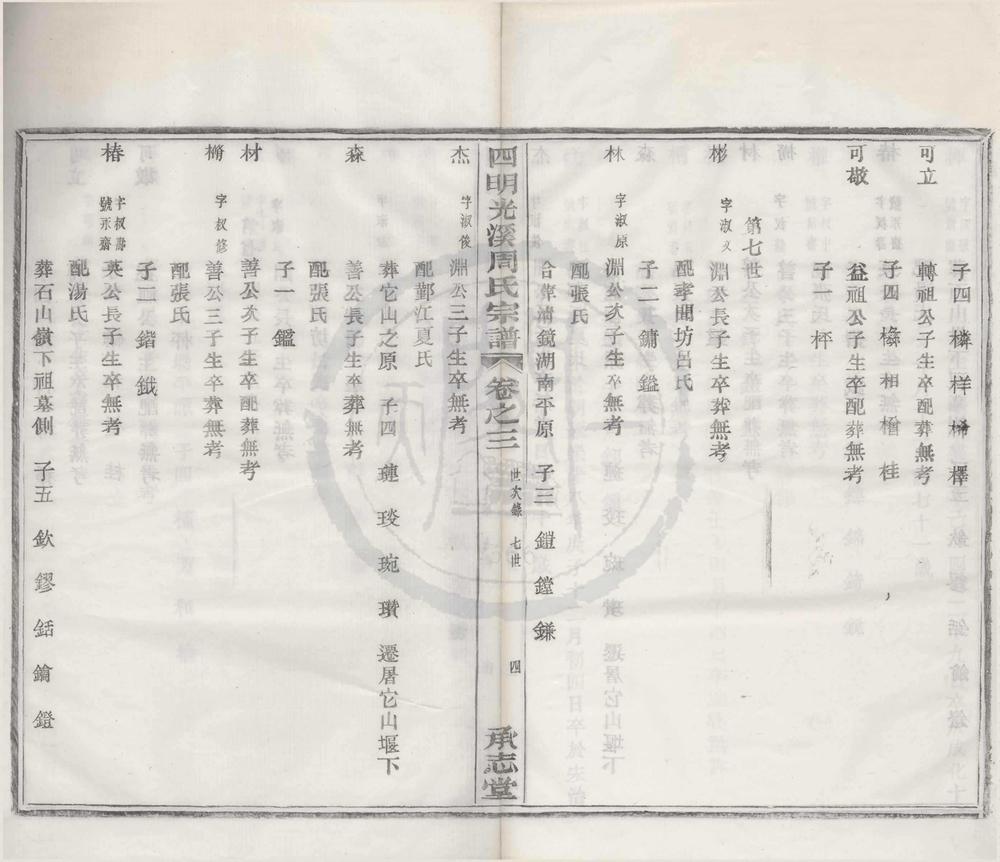 子四 橉 样 桸 檡
可立 轉祖公子生卒配葬無考
子四 橼 相 檜 桂
可敬 益祖公子生卒配葬無考
子一 枰
第七世
彬 字淑文 淵公長子生卒葬無考
配孝聞坊呂氏
子二 鏞 鎰
林 字淑原 淵公次子生卒無考
配張氏
合葬清鏡湖南平原 子三 鎧 鏜 鎌
四明光溪周氏宗譜 卷之三 世次錄 七世 四 承志堂
杰 字淑俊 淵公三子生卒無考
配鄞江夏氏
葬它山之原 子四 璉 琰 琬 瓚 遷居它山堰下
森 善公長子生卒葬無考
配張氏
子一 鑑
材 善公次子生卒配葬無考
橁 字叔修 善公三子生卒葬無考
配張氏
子二 鍇 鉞
椿 字叔壽 號永齋 英公長子生卒無考
配湯氏
葬石山嶺下祖墓側 子五 欽 鏐 銛 鑰 鐙